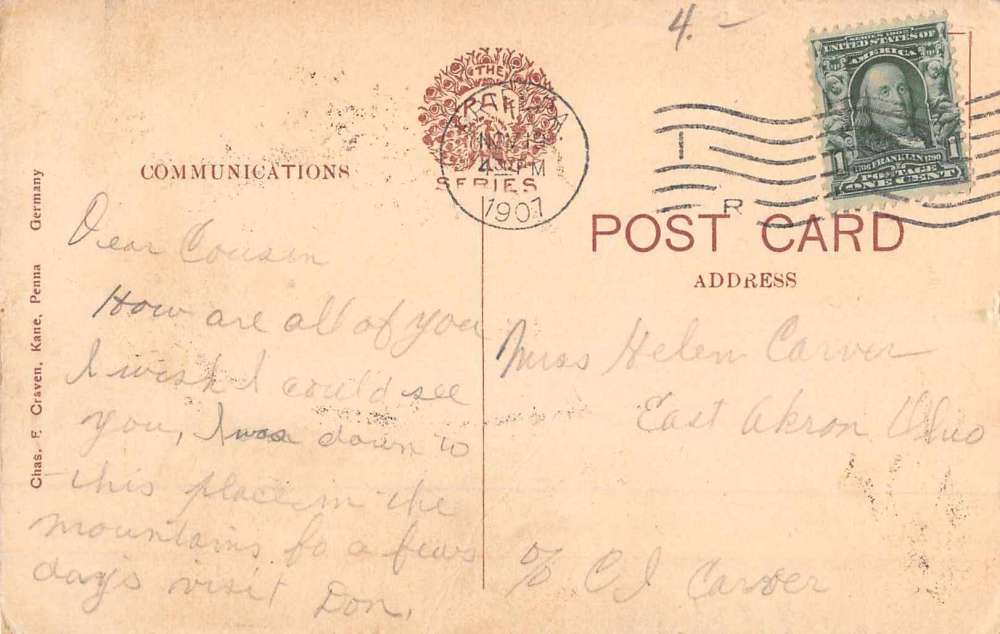 4.-
SERIES 1902
UNITED STATES OF
AMERICA
1 1706 FRANKLIN 1790 1
POSTAGE
ONE CENT
THE
SERIES
NOV
4 PM
1907
COMMUNICATIONS
Chas. F. Craven, Kane, Penna Germany
Dear Cousin
How are all of you
I wish I could see
you, I was down to
this place in the
mountains fo a few
days visit Don,
R
POST CARD
ADDRESS
Miss Helen Carver
East Akron Ohio
c/o C J Carver